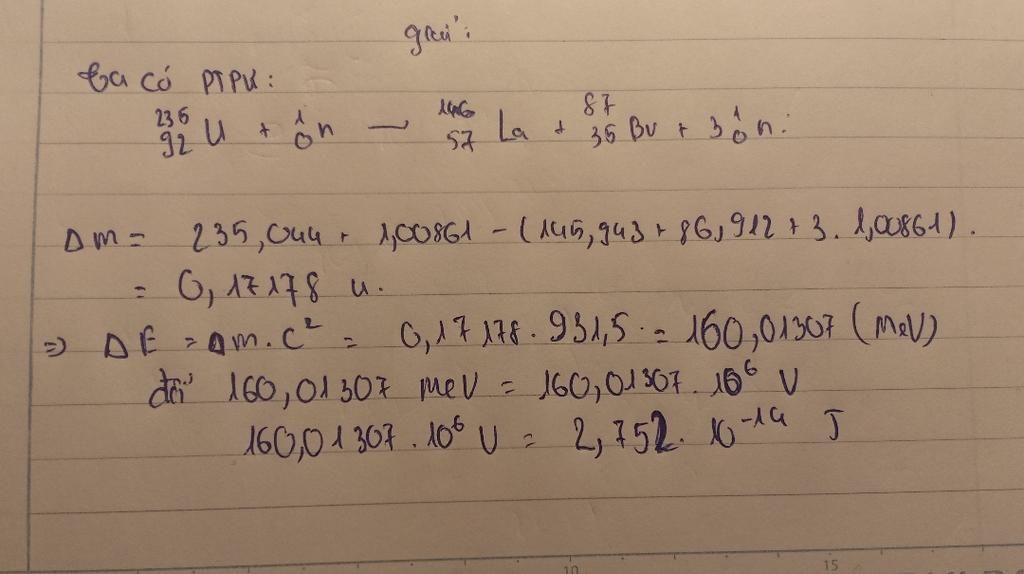 giải:
Ta có PTPƯ:
²³⁵₉₂U + ¹₀n → ¹⁴⁶₅₇La + ⁸⁷₃₅Br + 3¹₀n.
Δm = 235,044 + 1,00861 - (145,943 + 86,912 + 3. 1,00861).
= 0,17178 u.
=> ΔE = Δm.C² = 0,17178. 931,5 = 160,01307 (MeV)
đổi 160,01307 MeV = 160,01307. 10⁶ V
160,01307. 10⁶ V = 2,752. 10⁻¹⁹ J
10 15